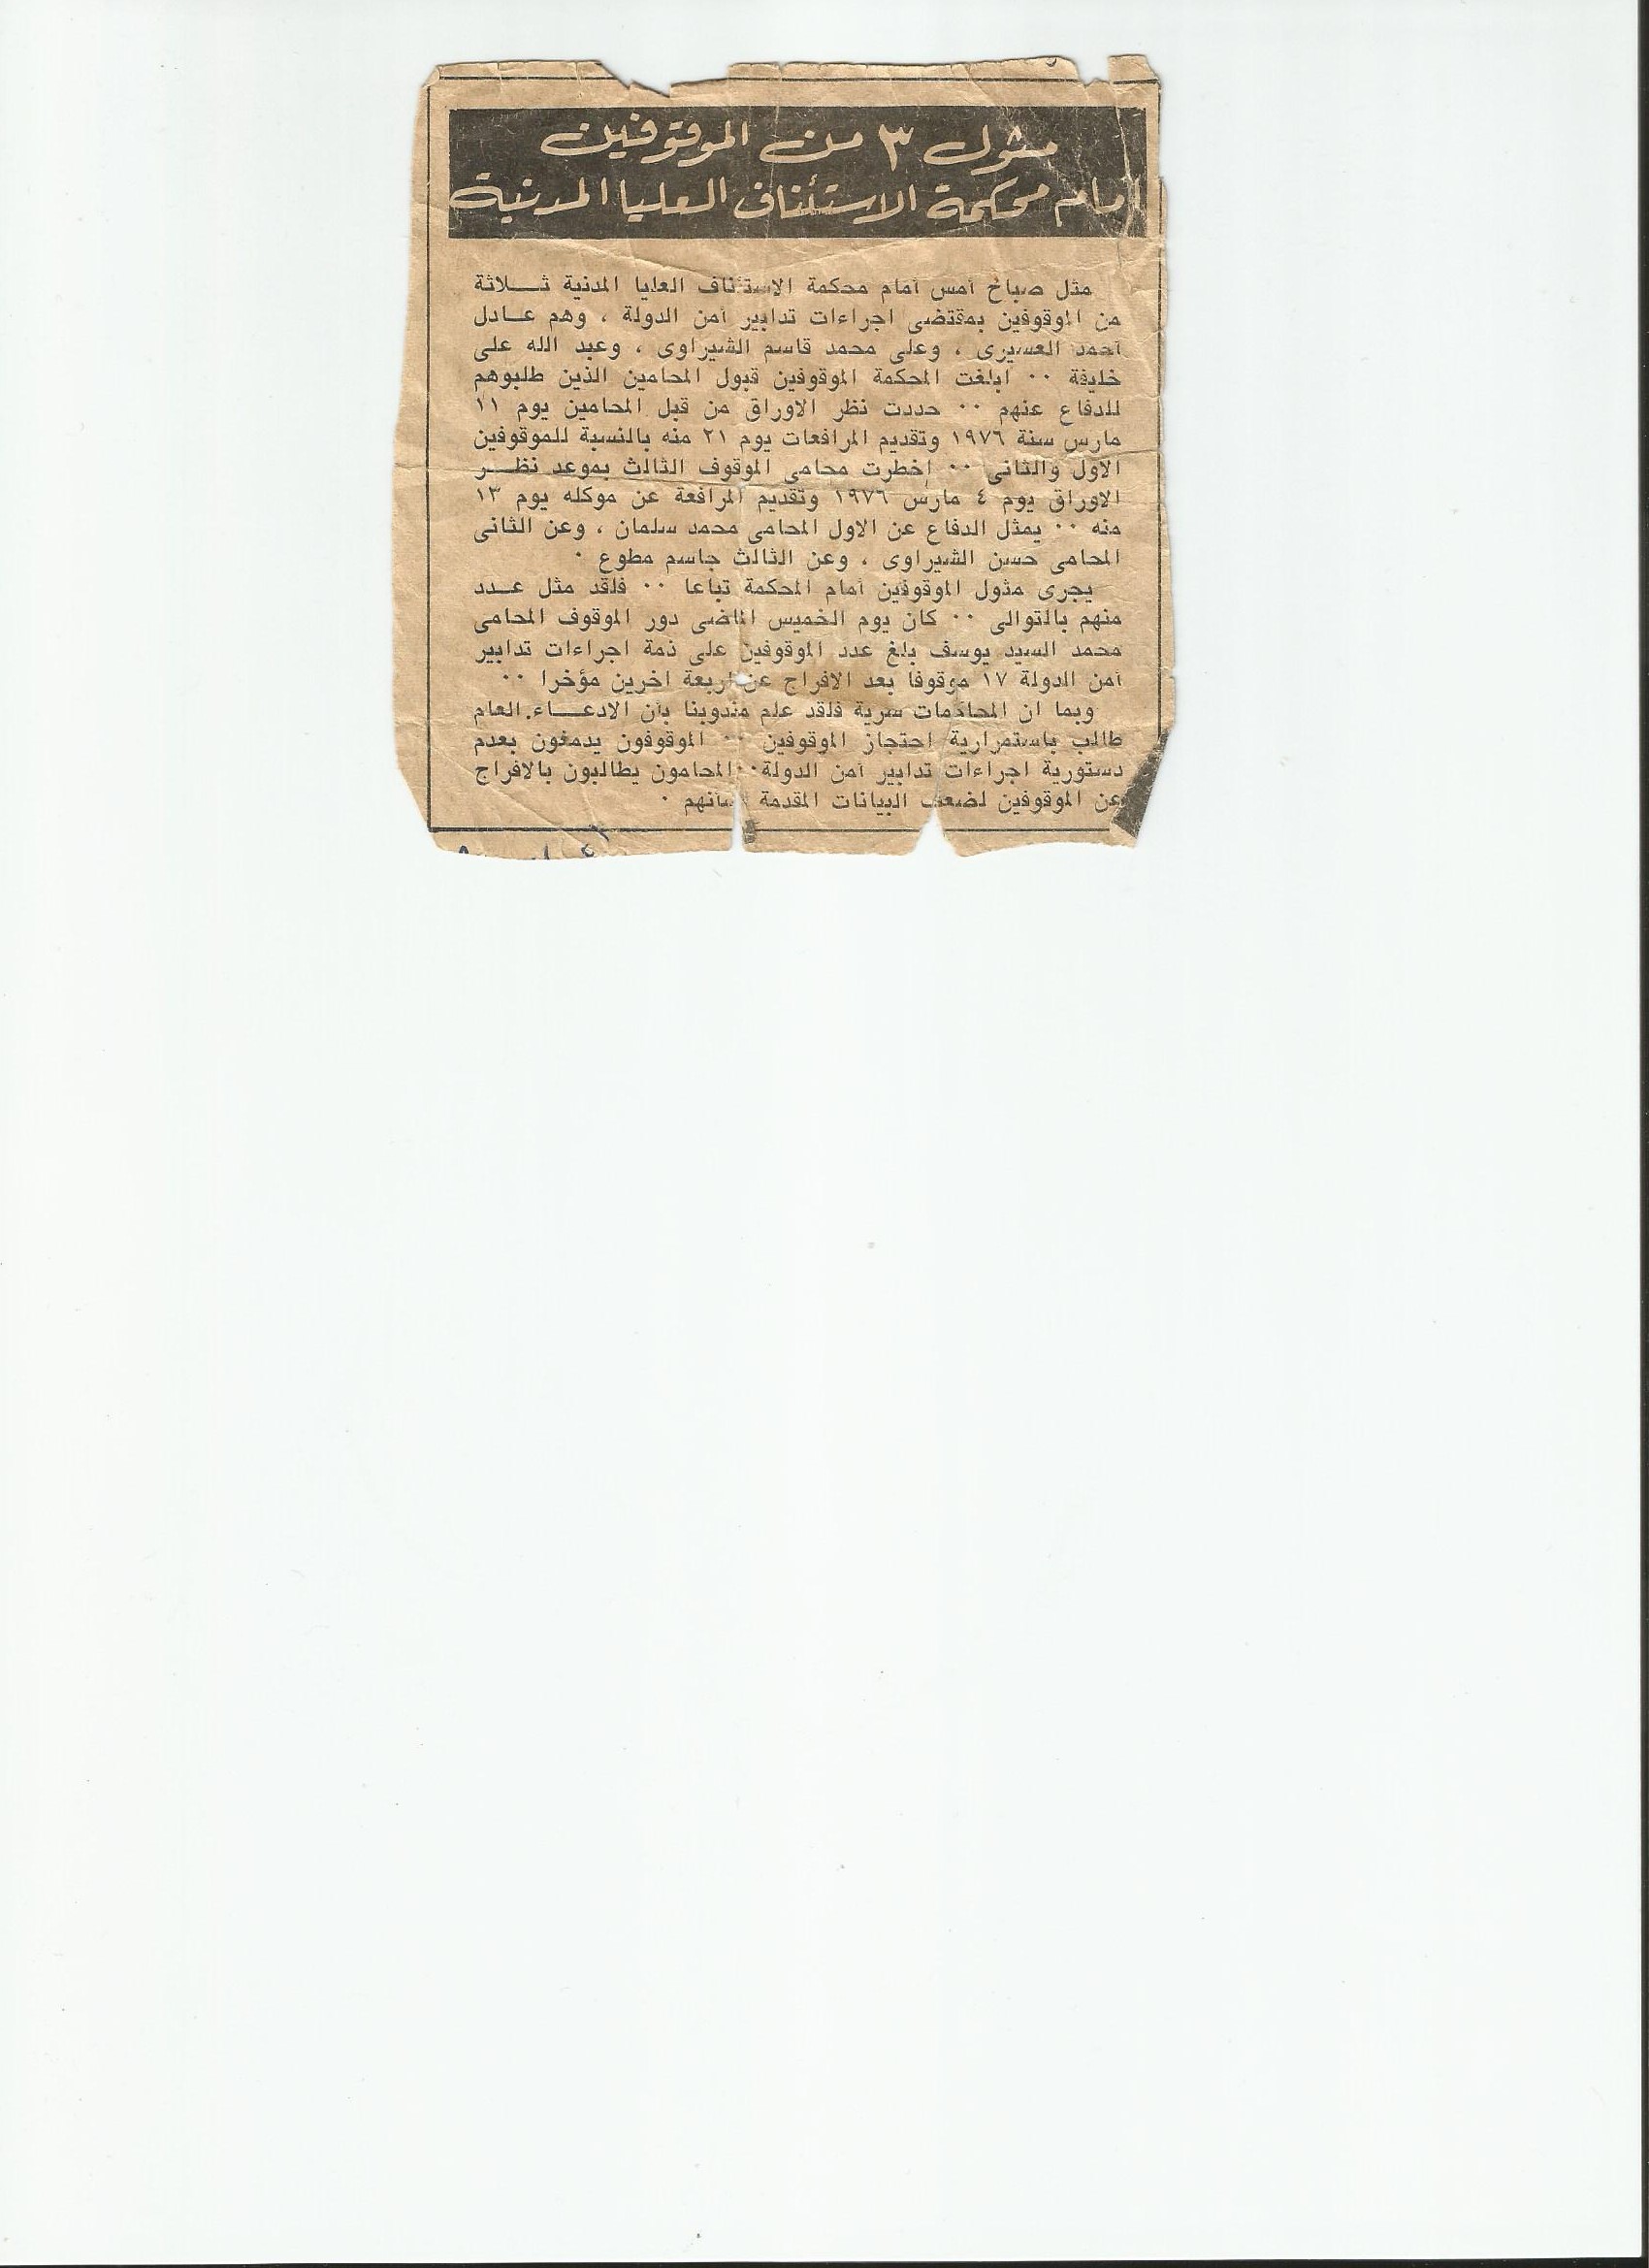 مثول ٣ من الموقوفين
أمام محكمة الاستئناف العليا المدنية
مثل صباح أمس أمام محكمة الاستئناف العليا المدنية ثـــلاثة
من الموقوفين بمقتضى اجراءات تدابير أمن الدولة ، وهم عــادل
أحمد العسيرى ، وعلى محمد قاسم الشيراوى ، وعبد الله على
خليفة ٠٠ ابلغت المحكمة الموقوفين قبول المحامين الذين طلبوهم
للدفاع عنهم ٠٠ حددت نظر الاوراق من قبل المحامين يوم ١١
مارس سنة ١٩٧٦ وتقديم المرافعات يوم ٢١ منه بالنسبة للموقوفين
الاول والثانى ٠٠ إخطرت محامى الموقوف الثالث بموعد نظـــر
الاوراق يوم ٤ مارس ١٩٧٦ وتقديم المرافعة عن موكله يوم ١٣
منه ٠٠ يمثل الدفاع عن الاول المحامى محمد سلمان ، وعن الثانى
المحامى حسن الشيراوى ، وعن الثالث جاسم مطوع ٠
يجرى مثول الموقوفين أمام المحكمة تباعا ٠٠ فلقد مثل عــدد
منهم بالتوالى ٠٠ كان يوم الخميس الماضى دور الموقوف المحامى
محمد السيد يوسف بلغ عدد الموقوفين على ذمة اجراءات تدابير
أمن الدولة ١٧ موقوفا بعد الافراج عن اربعة اخرين مؤخرا ٠٠
وبما ان المحاكمات سرية فلقد علم مندوبنا بأن الادعـــاء العام
طالب باستمرارية احتجاز الموقوفين ٠٠ الموقوفون يدمغون بعدم
دستورية اجراءات تدابير أمن الدولة٠٠المحامون يطالبون بالافراج
عن الموقوفين لضعف البيانات المقدمة بشأنهم ٠